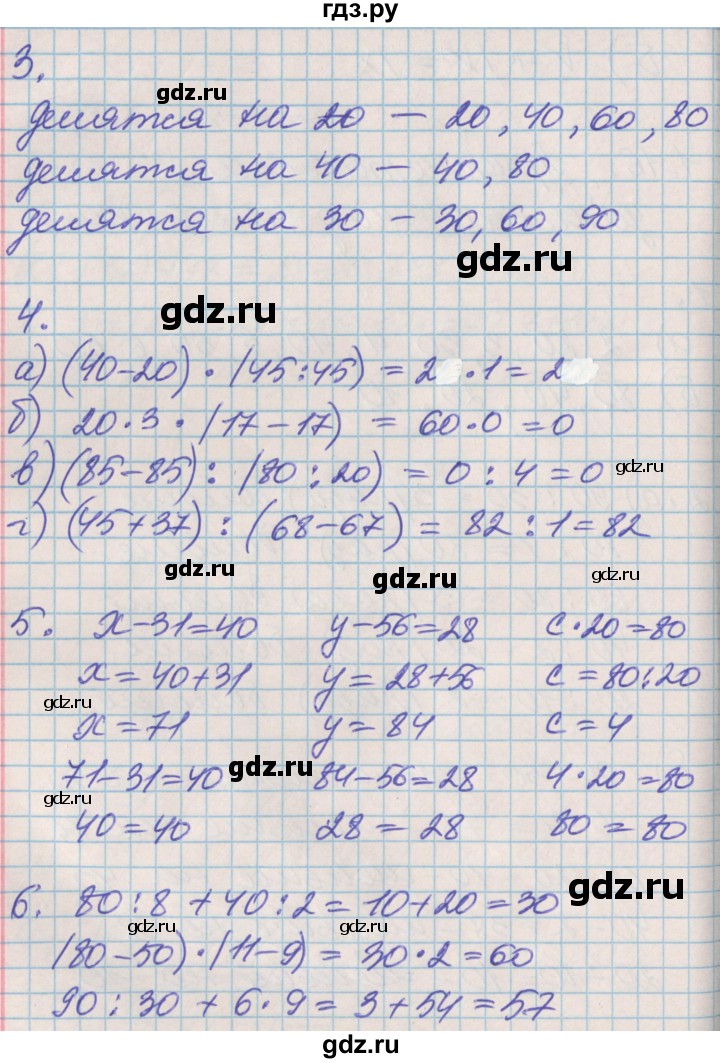 гдз.ру
3.
gdz.ru
делятся на 20 – 20, 40, 60, 80
делятся на 40 – 40, 80
делятся на 30 – 30, 60, 90
gdz.ru
4.
gdz.ru
а) (40-20) · (45:45) = 2 · 1 = 2
б) 20·3 · (17-17) = 60·0 = 0
в) (85-85) : (80:20) = 0 : 4 = 0 gdz.ru
г) (45+37) : (68-67) = 82 : 1 = 82
gdz.ru gdz.ru gdz.ru
5. x-31=40 y-56=28 c·20=80
x=40+31 y=28+56 c=80:20
gdz.ru gdz.ru
x=71 y=84 c=4
71-31=40 gdz.ru 84-56=28 4·20=80
gdz.ru
40=40 28=28 80=80
gdz.ru
6. 80:8+40:2=10+20=30
gdz.ru gdz.ru
(80-50)·(11-9)=30·2=60
90:30+6·9=3+54=57
gdz.ru